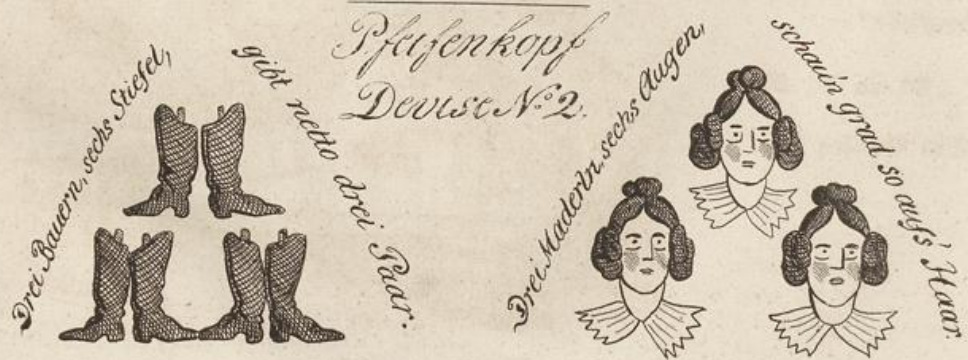 Pfeifenkopf
Devise No. 2.
Drei Bauern, sechs Stiefel,
gibt netto drei Paar.
Drei Maderln, sechs Augen,
schau'n grad so auf's Haar.